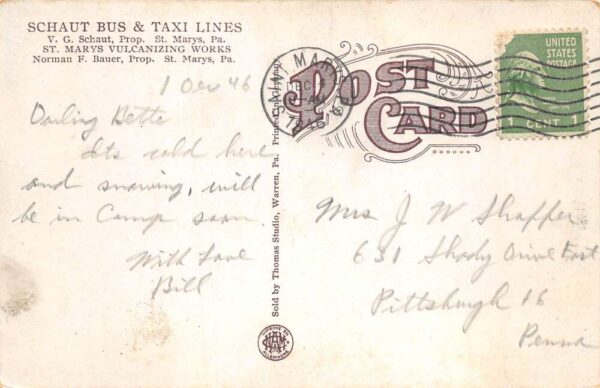 SCHAUT BUS & TAXI LINES
V. G. Schaut, Prop. St. Marys, Pa.
ST. MARYS VULCANIZING WORKS
Norman F. Bauer, Prop. St. Marys, Pa.
1 Dec 46
Darling Bette
Its cold here
and snowing, will
be in Camp soon
With Love
Bill
Sold by Thomas Studio, Warren, Pa.
POST
CARD
SAINT MARYS
DEC
1946
UNITED
STATES
POSTAGE
1 CENT 1
Mrs J W Shaffer
631 Shady Drive East
Pittsburgh 16
Penna